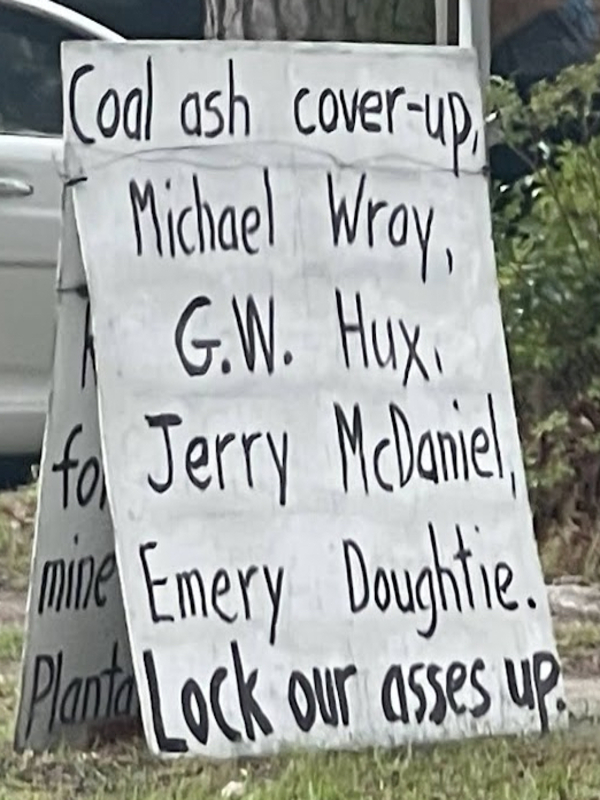 Coal ash cover-up,
Michael Wray,
G.W. Hux,
Jerry McDaniel,
Emery Doughtie.
Lock our asses up.
for
mine
Planta